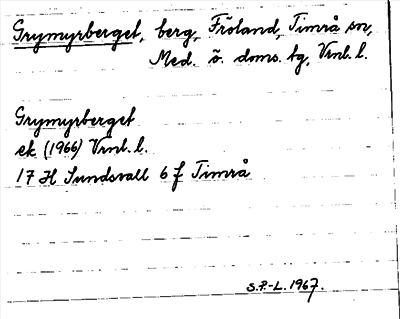 Grymyrberget, berg, Fröland, Timrå sn,
Med. ö. doms. tg, Vrnl. l.
Grymyrberget
ek (1966) Vrnl. l.
17 H Sundsvall 6 f Timrå
S.P-L. 1967.